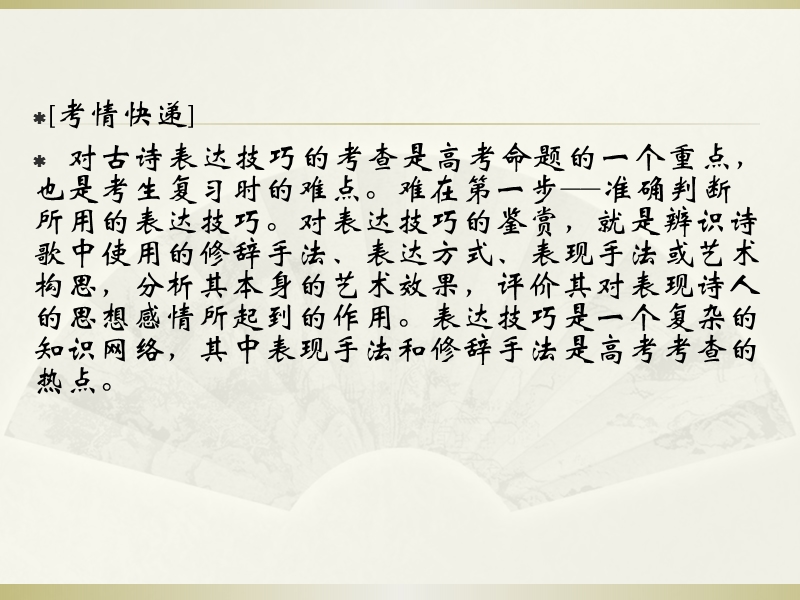 ✱[考情快递]
✱ 对古诗表达技巧的考查是高考命题的一个重点，
也是考生复习时的难点。难在第一步——准确判断
所用的表达技巧。对表达技巧的鉴赏，就是辨识诗
歌中使用的修辞手法、表达方式、表现手法或艺术
构思，分析其本身的艺术效果，评价其对表现诗人
的思想感情所起到的作用。表达技巧是一个复杂的
知识网络，其中表现手法和修辞手法是高考考查的
热点。